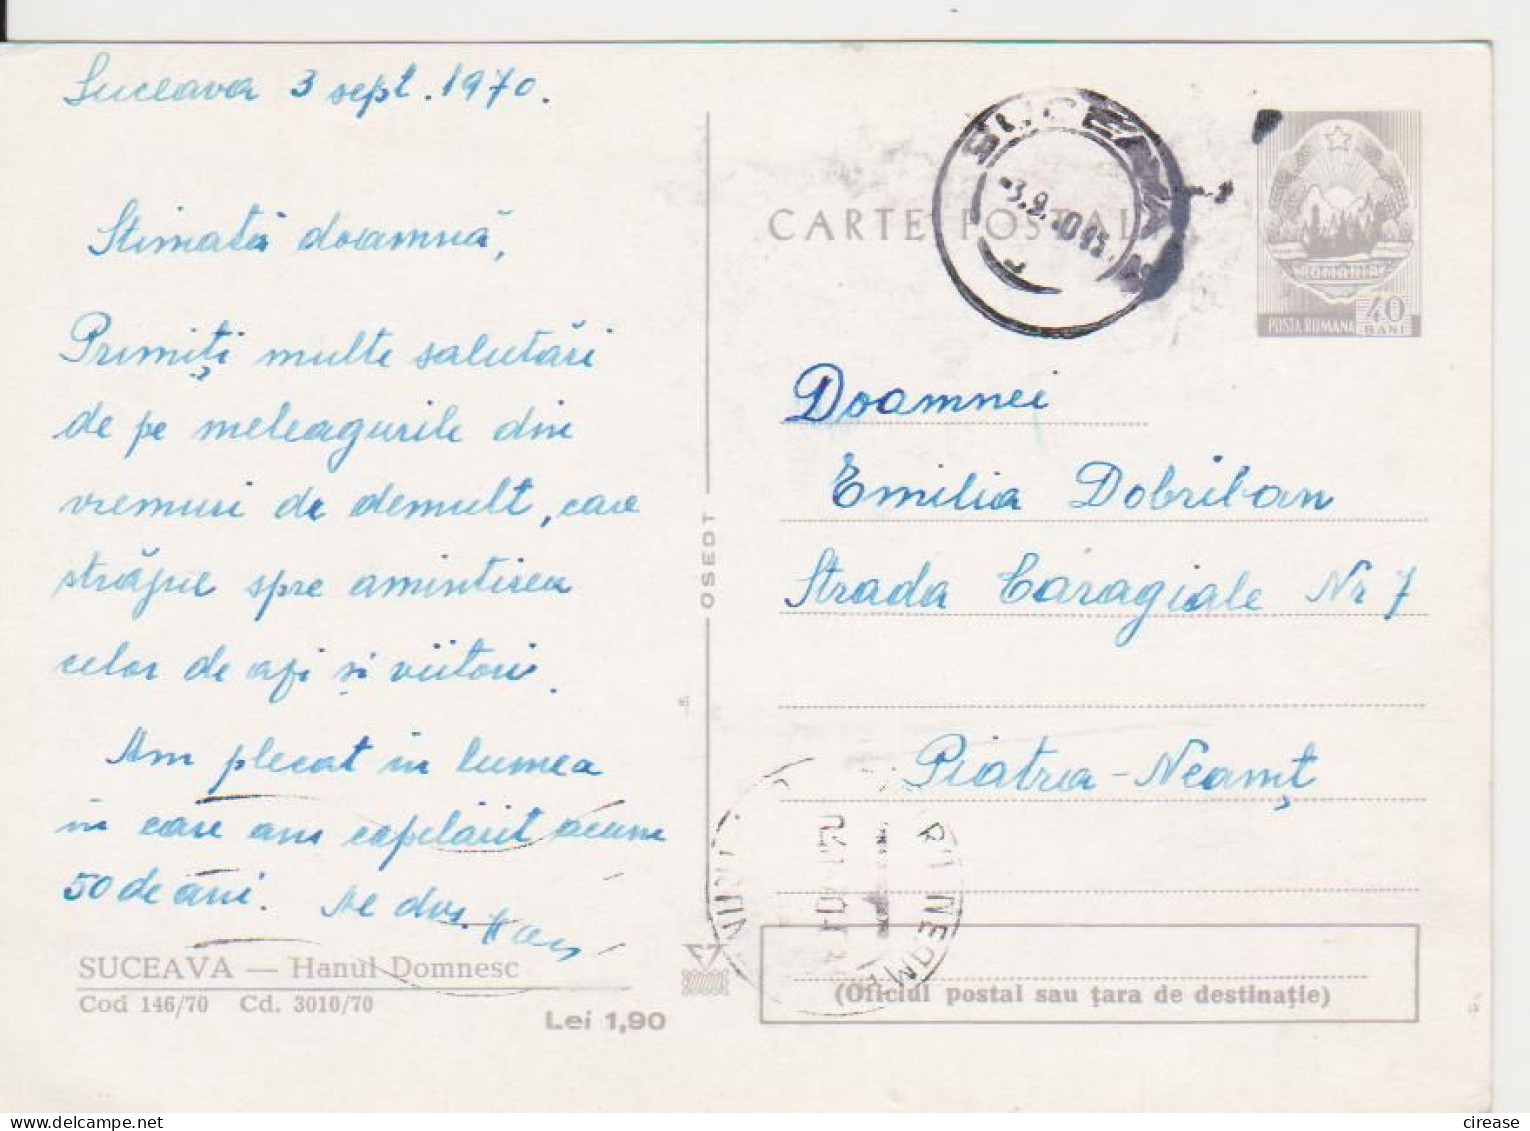 Suceava 3 sept. 1970.
Stimată doamnă,
Primiți multe salutări
de pe meleagurile din
vremuri de demult, care
străjuie spre amintirea
celor de azi și viitori.
Am plecat în lumea
în care am copilărit acum
50 de ani. Al dvs.
SUCEAVA — Hanul Domnesc
Cod 146/70 Cd. 3010/70
Lei 1,90
OSEDT
CARTE POSTALA
SUCEAVA
ROMANIA
POSTA ROMANA 40 BANI
Doamnei
Emilia Dobriban
Strada Caragiale Nr 7
Piatra-Neamț
NEAMT
(Oficiul postal sau țara de destinație)
cirease